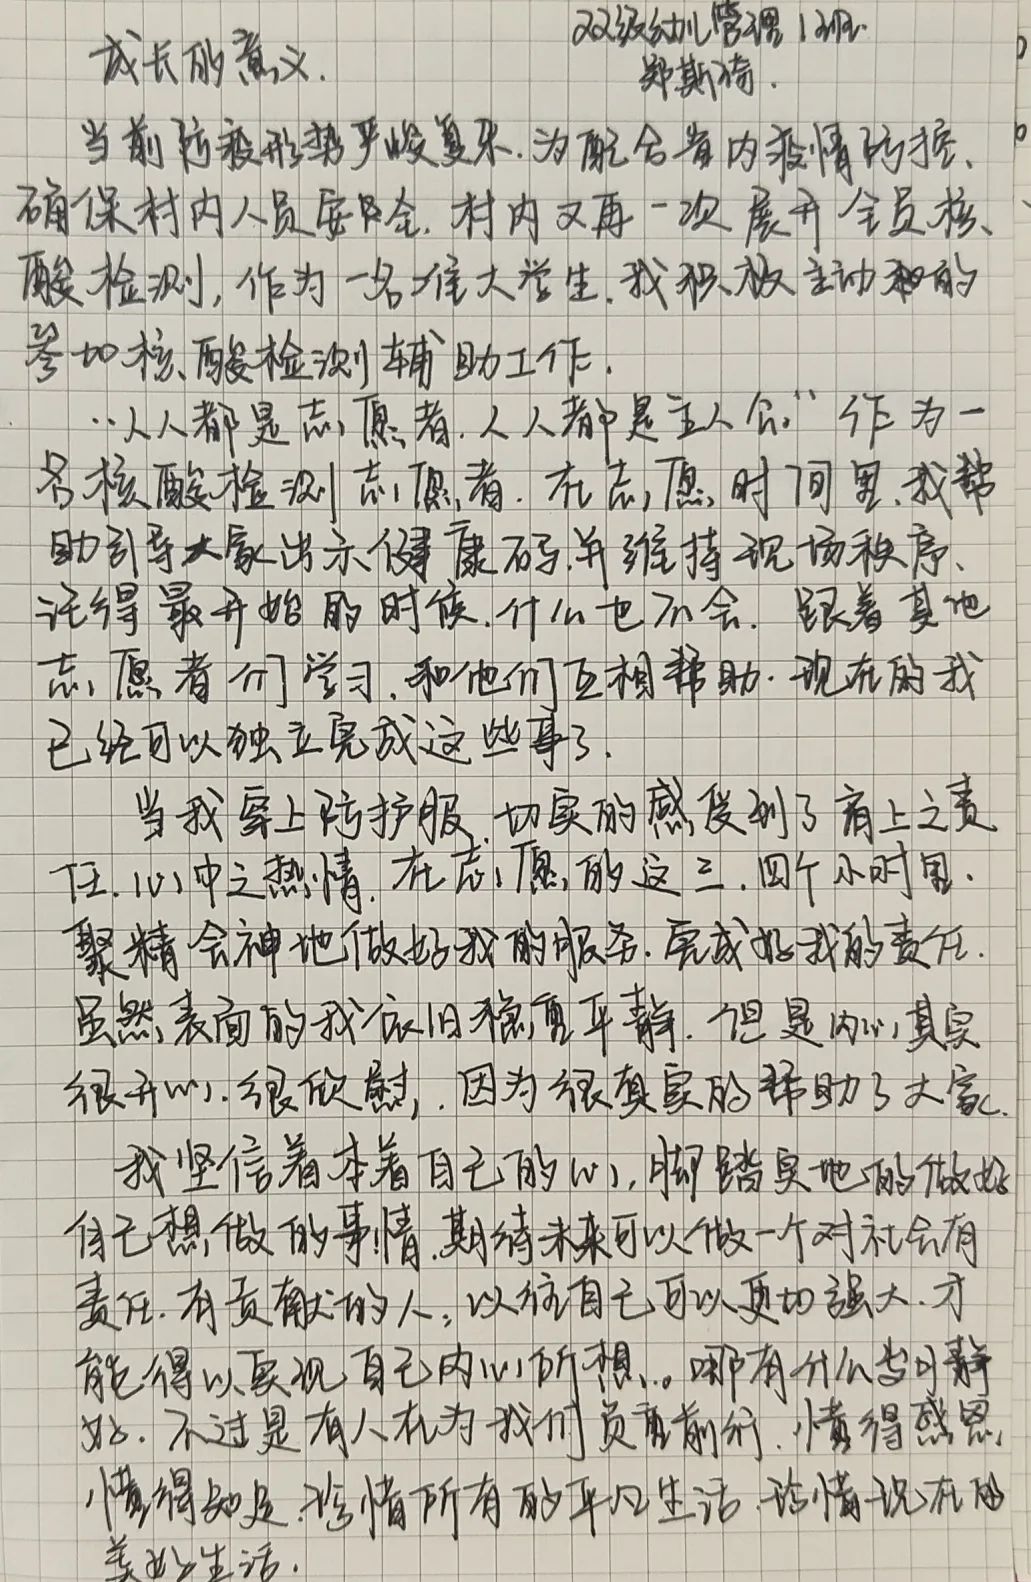 22级幼儿管理1班
成长的意义.
郑斯琦.
当前防疫形势严峻复杂.为配合省内疫情防控、
确保村内人员安全.村内又再一次展开全员核
酸检测,作为一名准大学生.我积极主动的
参加核酸检测辅助工作.
“人人都是志愿者.人人都是主人公”作为一
名核酸检测志愿者.在志愿时间里.我帮
助引导大家出示健康码.并维持现场秩序、
记得最开始的时候.什么也不会.跟着其他
志愿者们学习.和他们互相帮助.现在的我
已经可以独立完成这些事了.
当我穿上防护服.切实的感受到了肩上之责
任.心中之热情.在志愿的这三.四个小时里.
聚精会神地做好我的服务.完成好我的责任.
虽然表面的我依旧稳重平静.但是内心其实
很开心.很欣慰,.因为很真实的帮助了大家.
我坚信着本着自己的心,脚踏实地的做好
自己想做的事情.期待未来可以做一个对社会有
责任.有贡献的人,以往自己可以更加强大.才
能得以实现自己内心所想.。哪有什么岁月静
好.不过是有人在为我们负重前行.懂得感恩,
懂得知足.珍惜所有的平凡生活.珍惜现在的
美好生活.